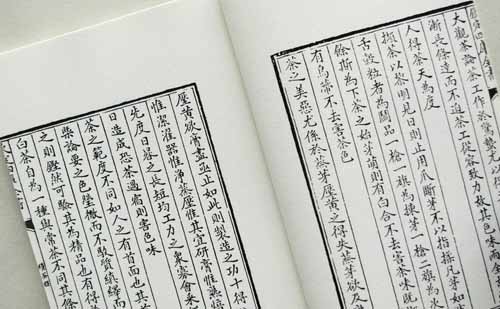 四庫全書
大觀茶論茶工作於驚蟄
漸長條達而不迫茶工從容致力故其茶
人得茶天為度
擷茶以黎明見日則止用爪斷芽不以指揉凡芽如
舌穀粒者為鬪品一槍一旗為揀芽一槍二旗為次
餘斯為下茶之始芽萌則有白合不去害茶味既
有烏蒂不去害茶色
茶之美惡尤係於蒸芽壓黃之得失蒸芽欲及
壓黃欲膏盡亟止如此則製造之功十得
惟潔濯器惟淨蒸壓惟其宜研膏惟熟焙
先度日晷之長短均工力之衆寡會采
日造成恐茶過宿則害色味
茶之範度不同如人之有首面也其
柴論要之色瑩徹而不駁質縝繹而
之則鏗然可驗其為精品也有得
白茶自為一種與常茶不同其條